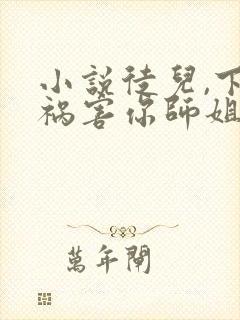 小說徒兒,下
禍害你師姐
萬年閘